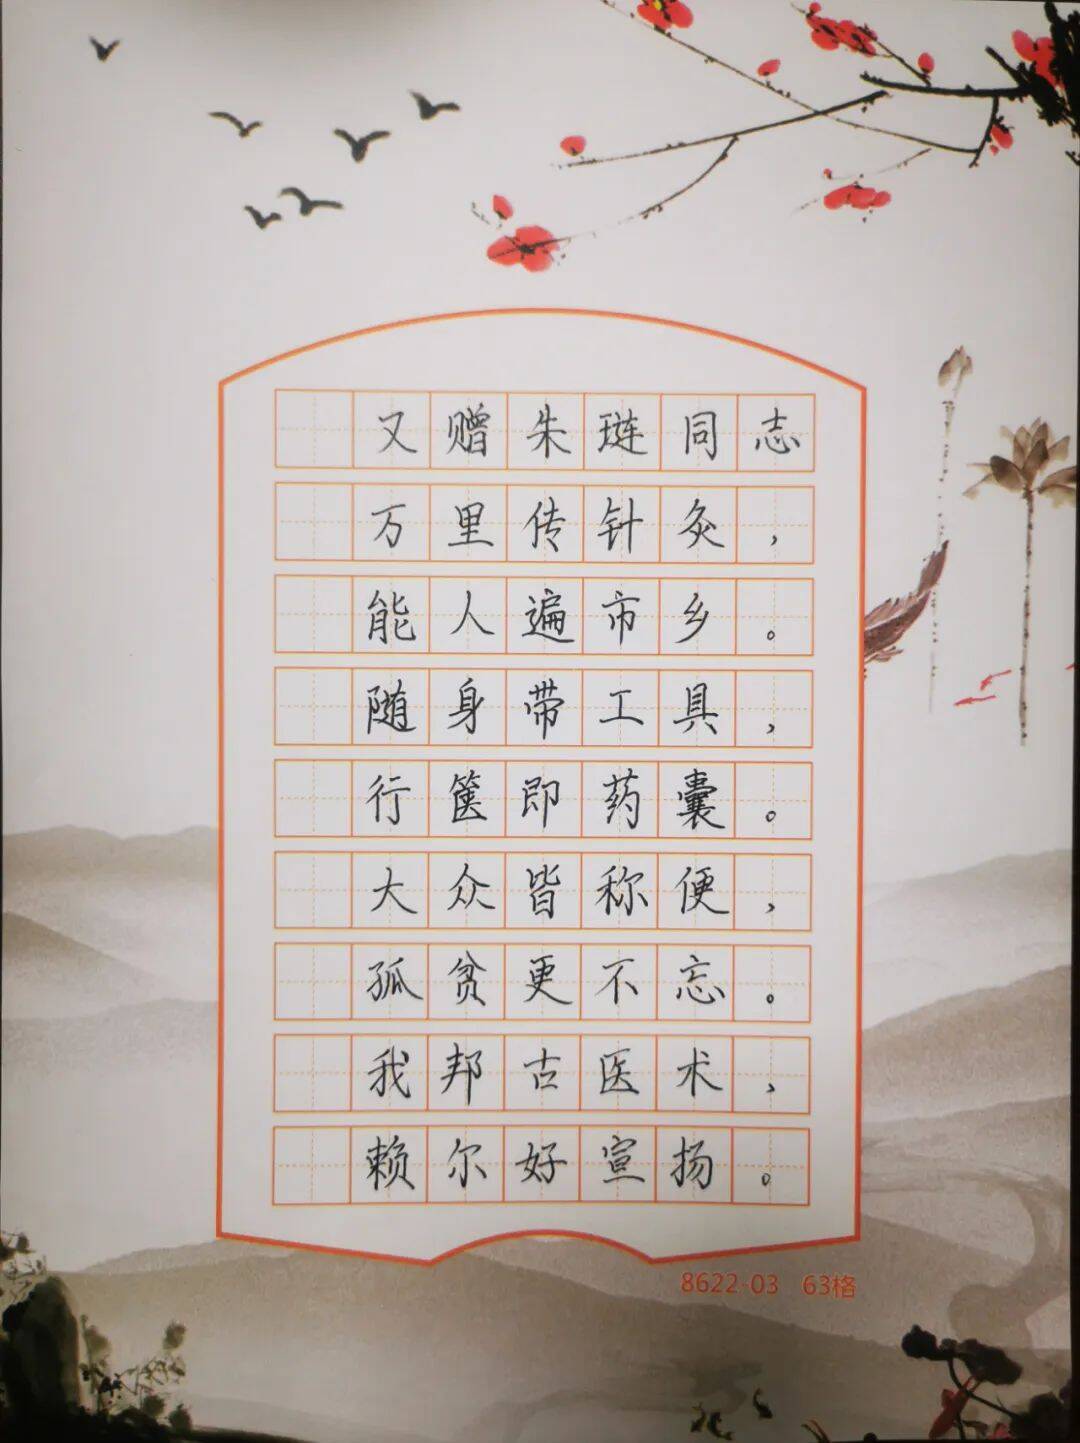 又赠朱琏同志
万里传针灸，
能人遍市乡。
随身带工具，
行箧即药囊。
大众皆称便，
孤贫更不忘。
我邦古医术，
赖尔好宣扬。
8622-03 63格